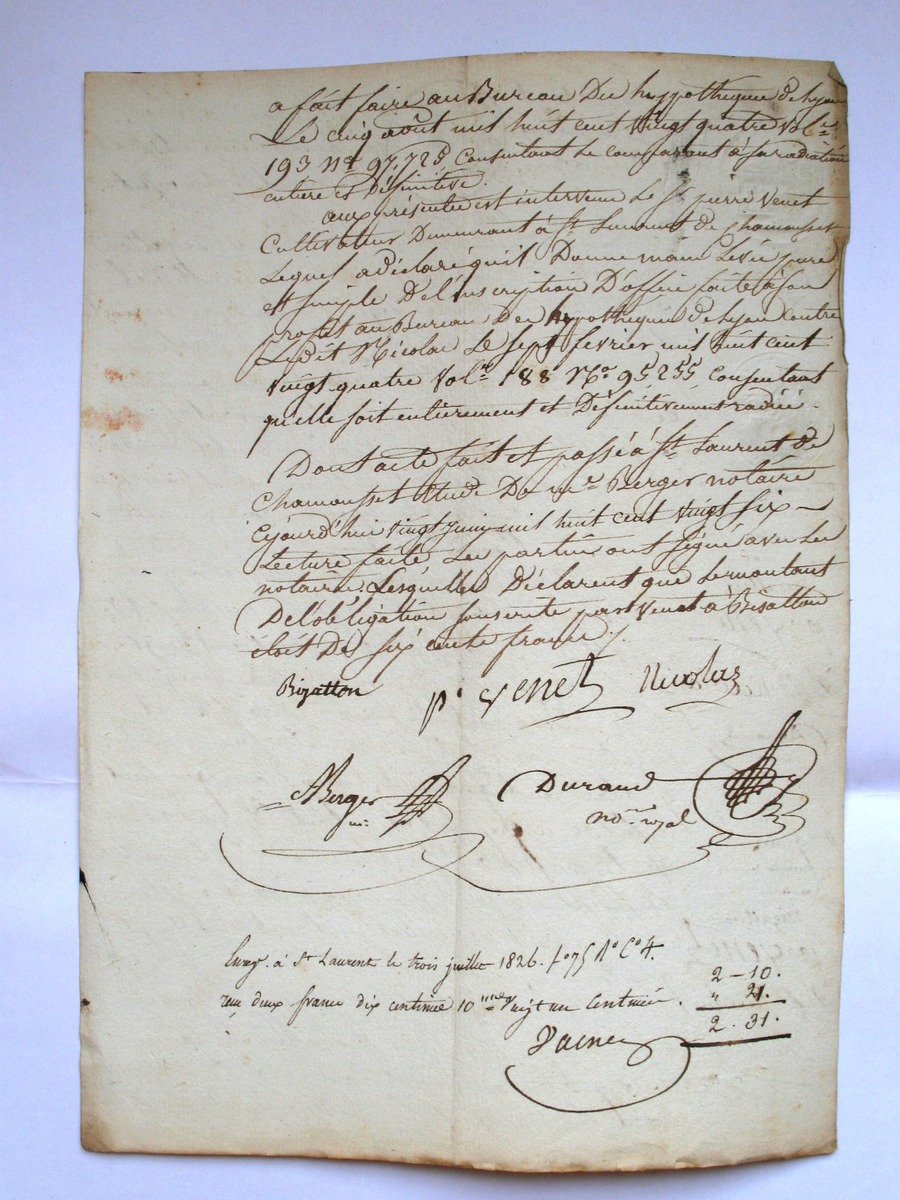 a fait faire au Bureau Des hypotheques de Lyon
Le cinq août mil huit cent vingt quatre vol.e
193 no. 97,725 Consentant Le comparant à sa radiation
entiere et Définitive.
aux présentes est intervenu Le Sr. pierre Venet
Cultivateur Demeurant à St. Laurent de chamousset
Lequel a déclaré qu'il Donne main Levée pure
et simple De l'inscription D'office faite à son
profit au Bureau Des hypotheques de Lyon contre
Ledit Nicolas Le sept fevrier mil huit cent
vingt quatre Vol.me 188 No. 95,255 Consentant
qu'elle soit entièrement et Définitivement radiée.
Dont acte fait et passé à St. Laurent de
Chamousset Etude De me. Berger notaire
Cejourd'hui vingt Juin mil huit cent vingt six
Lecture faite Les parties ont Signé avec Les
notaires. Lesquelles Déclarent que Le montant
De l'obligation souscrite par Venet à Bizatton
étoit De six cents francs.
Bizatton
pe Venet
Nicolas
Berger
nre.
Durand
nore. royal
Enreg. à St Laurent le trois juillet 1826. fo 75 Ro Co 4.
reçu deux francs dix centimes 10me vingt un Centimes.
2 - 10.
" 21.
2. 31.